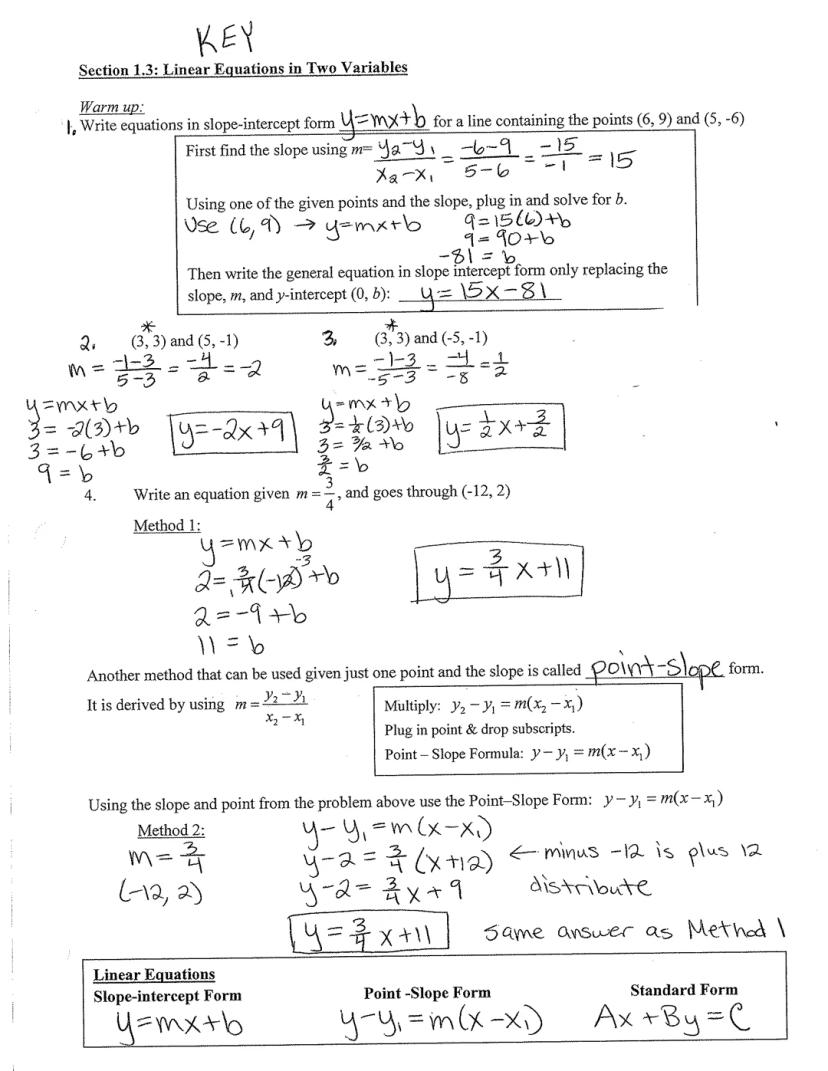 KEY
Section 1.3: Linear Equations in Two Variables
Warm up:
1. Write equations in slope-intercept form y=mx+b for a line containing the points (6, 9) and (5, -6)
First find the slope using m= (y₂-y₁)/(x₂-x₁) = (-6-9)/(5-6) = -15/-1 = 15
Using one of the given points and the slope, plug in and solve for b.
Use (6,9) → y=mx+b 9=15(6)+b
9=90+b
-81=b
Then write the general equation in slope intercept form only replacing the
slope, m, and y-intercept (0, b): y=15x-81
2. (3, 3)* and (5, -1)
m = (-1-3)/(5-3) = -4/2 = -2
y=mx+b
3= -2(3)+b
3=-6+b
9=b
y=-2x+9
3. (3, 3)* and (-5, -1)
m= (-1-3)/(-5-3) = -4/-8 = 1/2
y=mx+b
3=1/2(3)+b
3=3/2+b
3/2=b
y=1/2x+3/2
4. Write an equation given m = 3/4, and goes through (-12, 2)
Method 1:
y=mx+b
2=3/4(-12)+b -3 1
2=-9+b
11=b
y=3/4x+11
Another method that can be used given just one point and the slope is called point-slope form.
It is derived by using m = (y₂-y₁)/(x₂-x₁)
Multiply: y₂-y₁=m(x₂-x₁)
Plug in point & drop subscripts.
Point – Slope Formula: y-y₁=m(x-x₁)
Using the slope and point from the problem above use the Point–Slope Form: y-y₁=m(x-x₁)
Method 2:
m=3/4
(-12, 2)
y-y₁=m(x-x₁)
y-2=3/4(x+12) ← minus -12 is plus 12
y-2=3/4x+9 distribute
y=3/4x+11 same answer as Method 1
Linear Equations
Slope-intercept Form Point -Slope Form Standard Form
y=mx+b y-y₁=m(x-x₁) Ax+By=C